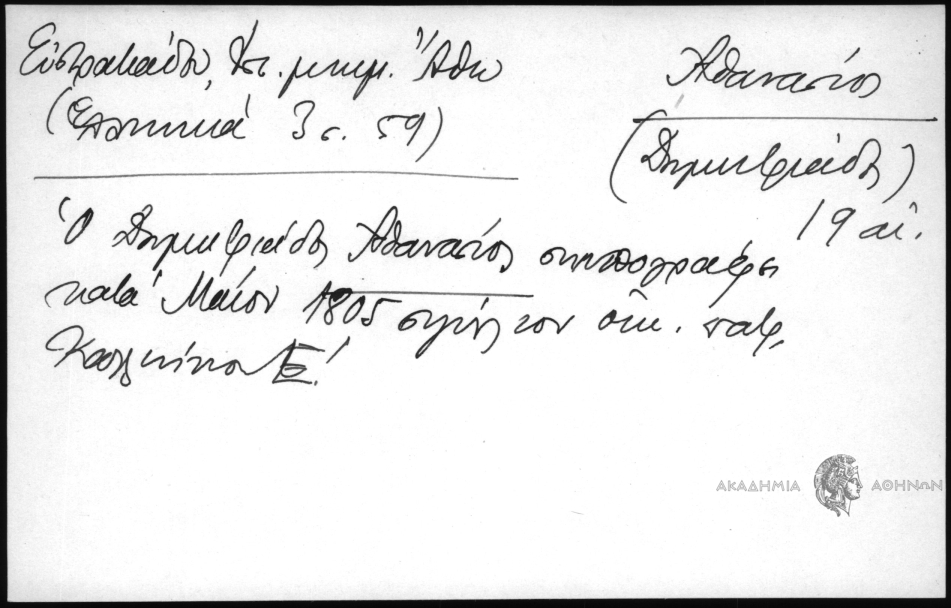 Εὐστρατιάδου, Ἱστ. μνημ. Ἄθω
(Ἑλληνικά 3 σ. 59)
Ἀθανάσιος
(Δημητριάδης)
19 αἰ.
Ὁ Δημητριάδης Ἀθανάσιος συνυπογράφει
κατά Μάϊον 1805 τον οἰκ. πατρ.
Καλλινίκου Ε΄.
ΑΚΑΔΗΜΙΑ ΑΘΗΝΩΝ